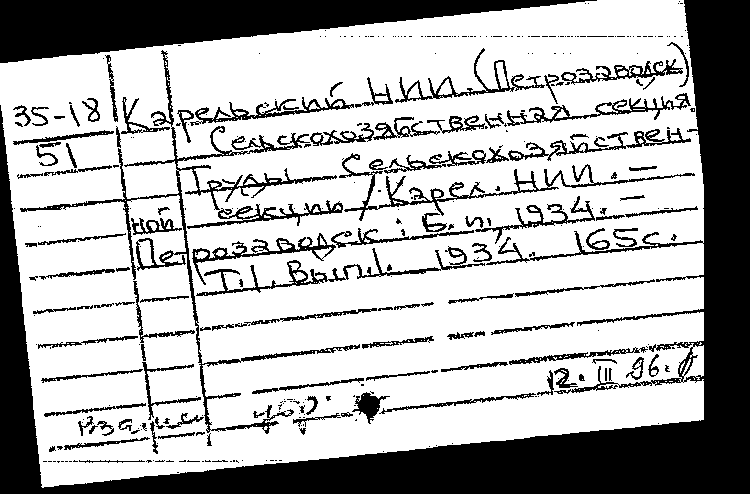 35-18 Карельский НИИ. (Петрозаводск)
51 Сельскохозяйственная секция.
Труды Сельскохозяйствен-
ной секции / Карел. НИИ. —
Петрозаводск: Б.и., 1934. —
Т.1. Вып.1. 1934. 165с.
12. III 96.